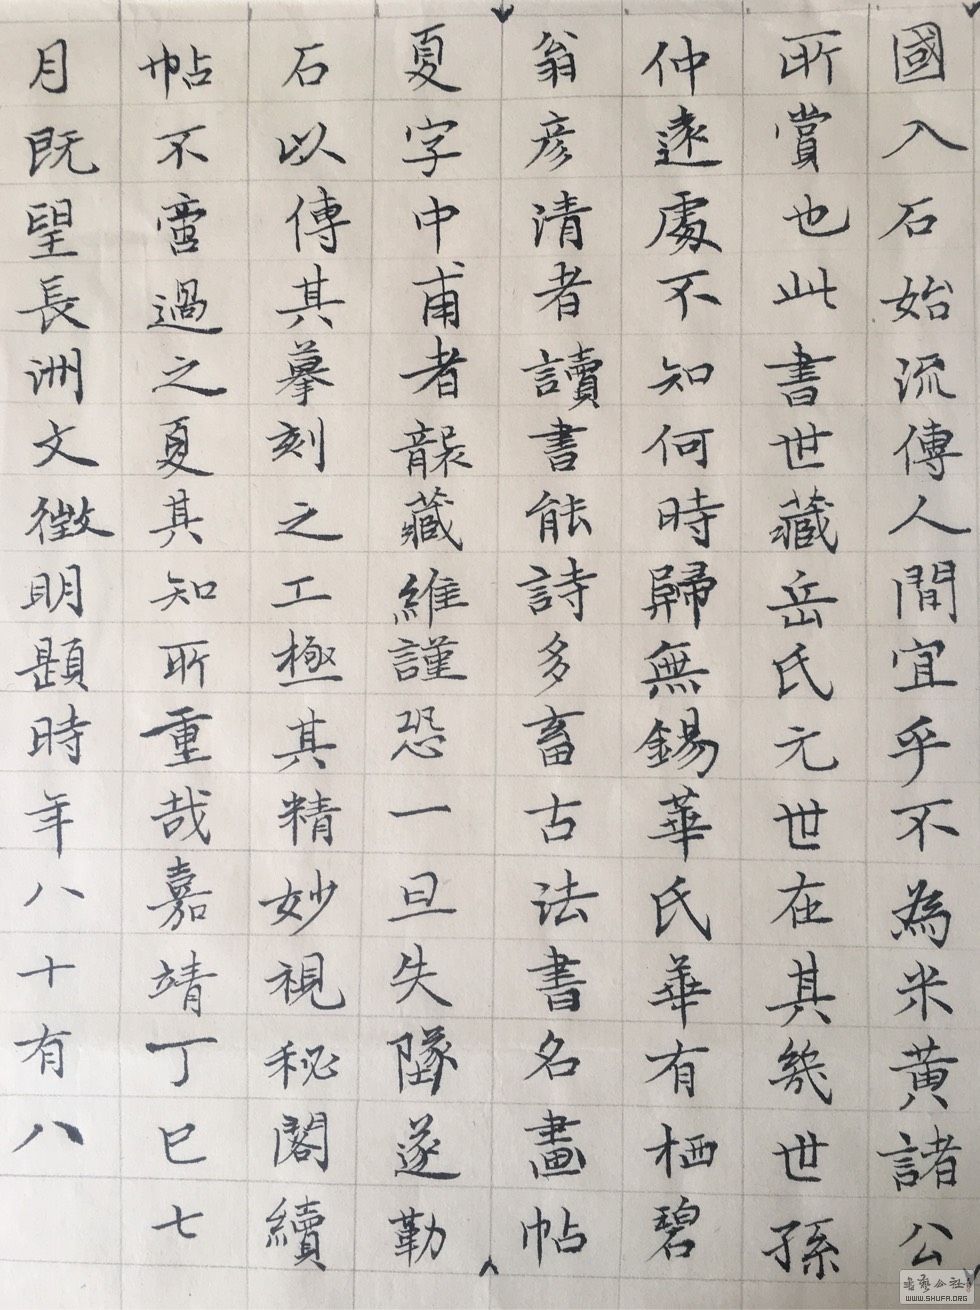 國入石始流傳人間宜乎不為米黃諸公
所賞也此書世藏岳氏元世在其幾世孫
仲遠處不知何時歸無錫華氏華有栖碧
翁彥清者讀書能詩多畜古法書名畫帖
夏字中甫者襲藏維謹恐一旦失墜遂勒
石以傳其摹刻之工極其精妙視秘閣續
帖不啻過之夏其知所重哉嘉靖丁巳七
月既望長洲文徵明題時年八十有八
WWW.SHUFA.ORG